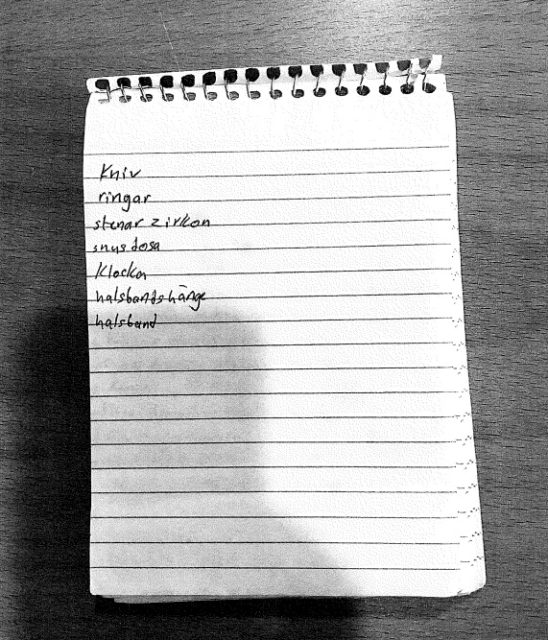 Kniv
ringar
stenar zirkon
snus dosa
Klocka
halsbandshänge
halsband